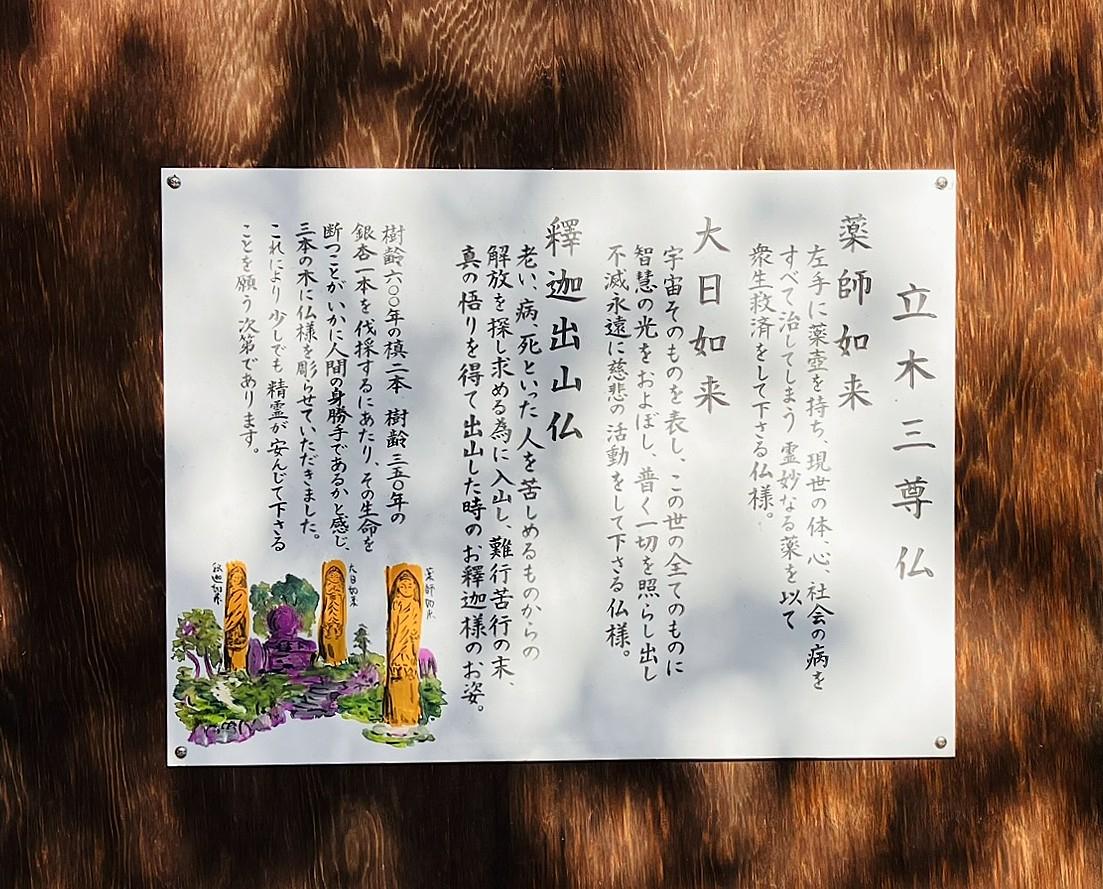 立木三尊仏
薬師如来
左手に薬壺を持ち、現世の体、心、社会の病を
すべて治してしまう 霊妙なる薬を以て
衆生救済をして下さる仏様。
大日如来
宇宙そのものを表し、この世の全てのものに
智慧の光をおよぼし、普く一切を照らし出し
不滅永遠に慈悲の活動をして下さる仏様。
釋迦出山仏
老い、病、死といった人を苦しめるものからの
解放を探し求める為に入山し、難行苦行の末、
真の悟りを得て出山した時のお釋迦様のお姿。
樹齢六〇〇年の槙二本 樹齢三五〇年の
銀杏一本を伐採するにあたり、その生命を
断つことがいかに人間の身勝手であるかと感じ、
三本の木に仏様を彫らせていただきました。
これにより少しでも精霊が安んじて下さる
ことを願う次第であります。
薬師如来
大日如来
釈迦如来